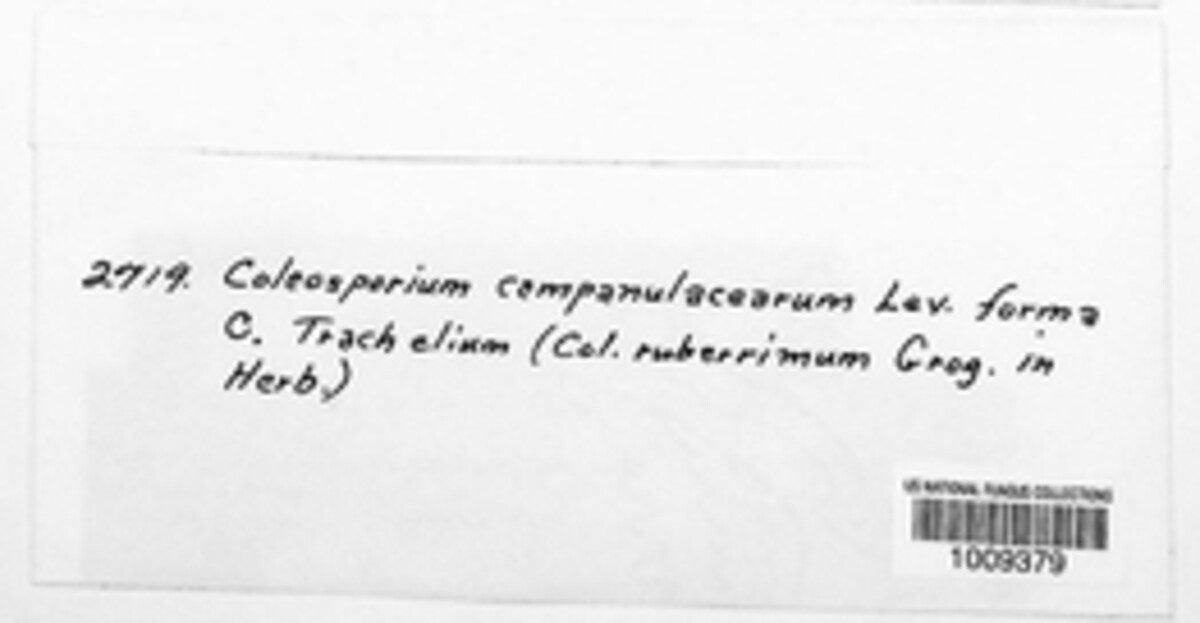 2719. Coleosporium campanulacearum Lev. forma
C. Trachelium (Col. ruberrimum Grog. in
Herb.)
US NATIONAL FUNGUS COLLECTIONS
1009379